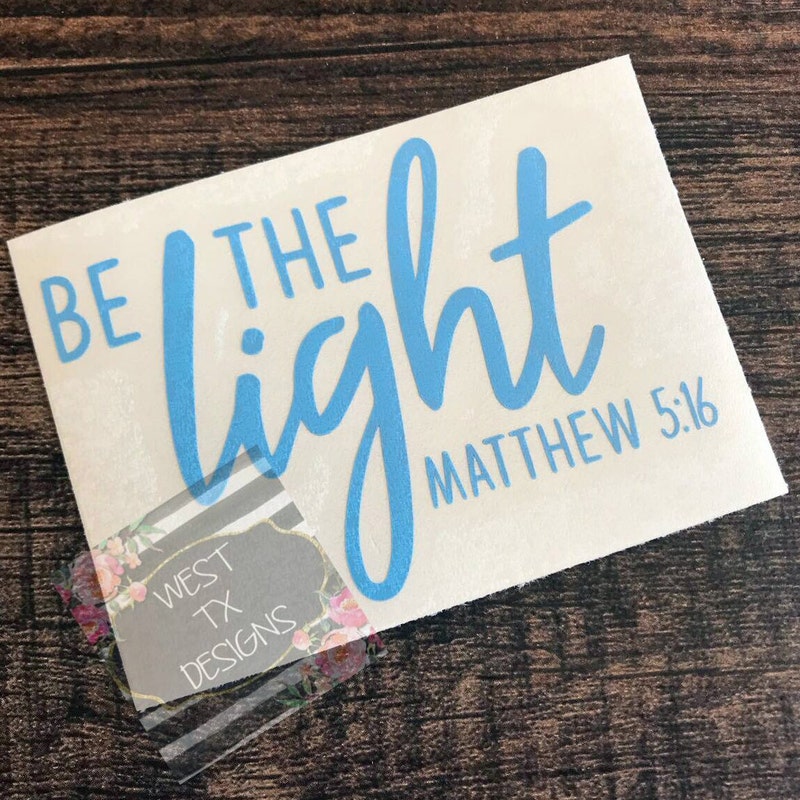 BE THE
light
MATTHEW 5:16
WEST
TX
DESIGNS